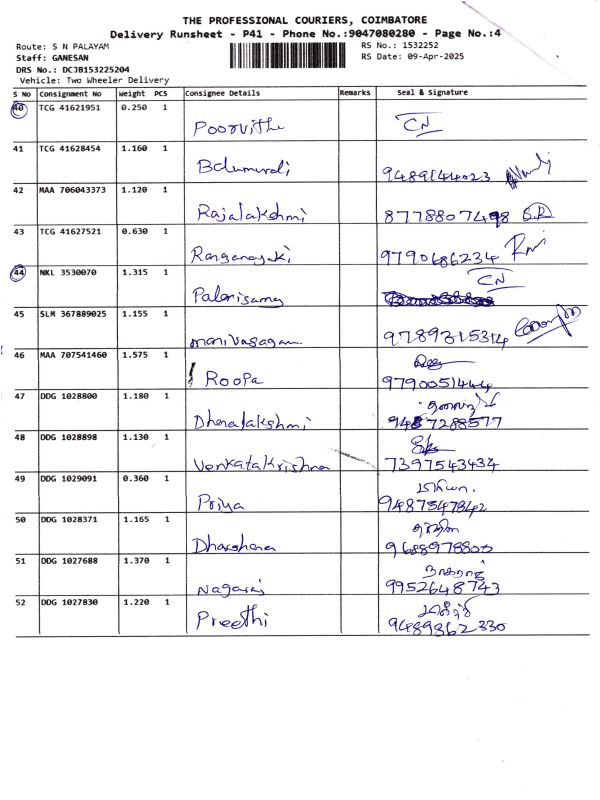 THE PROFESSIONAL COURIERS, COIMBATORE
Delivery Runsheet - P41 - Phone No.:9047080280 - Page No.:4
Route: S N PALAYAM RS No.: 1532252
Staff: GANESAN RS Date: 09-Apr-2025
DRS No.: DCJB153225204
Vehicle: Two Wheeler Delivery
S No Consignment No Weight PCS Consignee Details Remarks Seal & Signature
40 TCG 41621951 0.250 1
Poorvitha CN
41 TCG 41628454 1.160 1
Balumurali 9489144023
42 MAA 706043373 1.120 1
Rajalakshmi 8778807498 S.R
43 TCG 41627521 0.630 1
Ranganayaki 9790686234
44 NKL 3530070 1.315 1 CN
Palanisamy
45 SLM 367889025 1.155 1
manivasagam 9789315314
46 MAA 707541460 1.575 1
Roopa 9790051444
47 DDG 1028800 1.180 1
Dhanalakshmi 9487288577
48 DDG 1028898 1.130 1
Venkatakrishna 7397543434
49 DDG 1029091 0.360 1
Priya 9487547842
50 DDG 1028371 1.165 1
Dharshana 9688978800
51 DDG 1027688 1.370 1 நாகராஜ்
Nagaraj 9952648743
52 DDG 1027830 1.220 1
Preethi 9489862330